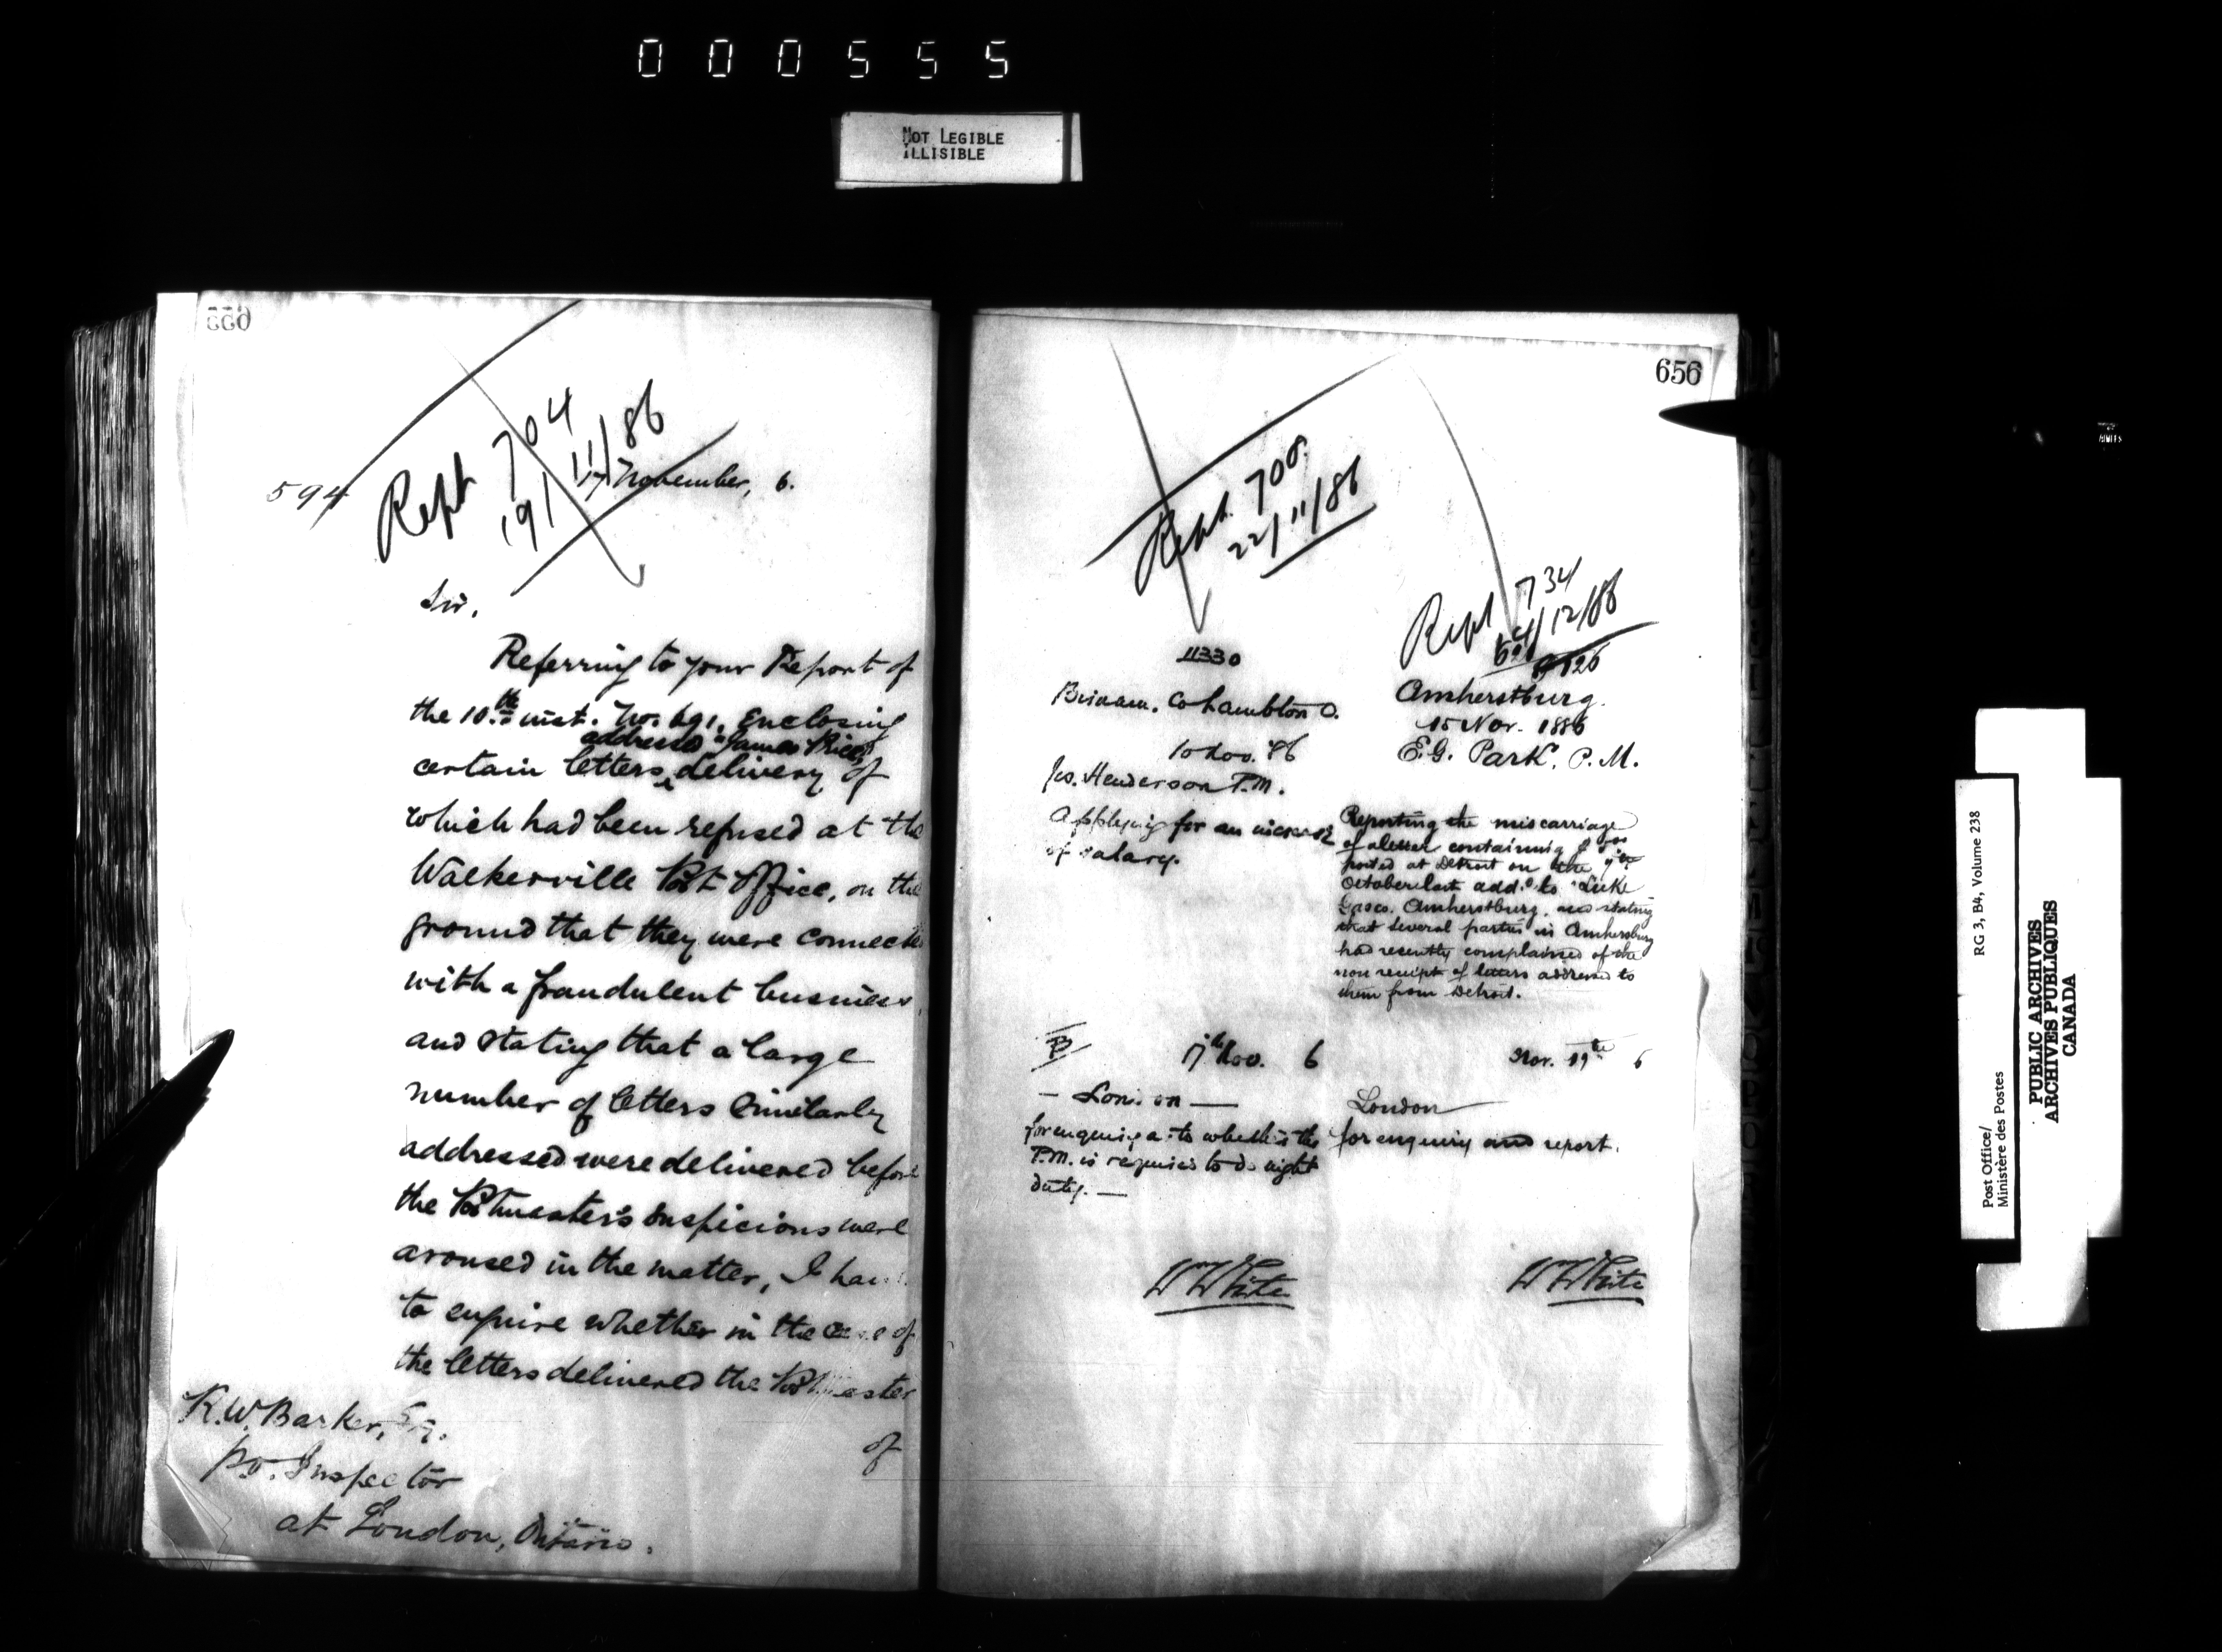 000555
NOT LEGIBLE
ILLISIBLE
Rept 704
19/11/86
594
17 November, 6.
Sir,
Referring to your Report of
the 10.th inst. No. 691, Enclosing
addressed "James Rice"
certain letters, delivery of
which had been refused at the
Walkerville Post Office, on the
ground that they were connecte
with a fraudulent business,
and stating that a large
number of letters similarly
addressed were delivered before
the Postmaster's suspicions were
aroused in the matter, I have
to enquire whether in the case of
the letters delivered the Postmaster
of
K.W. Barker, Esq.
P.O. Inspector
at London, Ontario.
656
Rept. 708.
22/11/86
11330
Co Lambton O.
10 Nov. '86
Jas. Henderson P.M.
Applying for an increase
of salary.
B
17th Nov. 6
— London —
for enquiry as to whether the
P.M. is required to do night
duty. —
W White
Rept 734
/12/86
Amherstburg.
15 Nov. 1886
E.G. Park, P.M.
Reporting the miscarriage
of a letter containing
posted at Detroit on the 9th
October last add.d to "Luke
Amherstburg, and stating
that several parties in Amherstburg
had recently complained of the
non receipt of letters addressed to
them from Detroit.
Nov. 17th 6
London
for enquiry and report.
W White
Post Office/
Ministère des Postes
RG 3, B4, Volume 238
PUBLIC ARCHIVES
ARCHIVES PUBLIQUES
CANADA